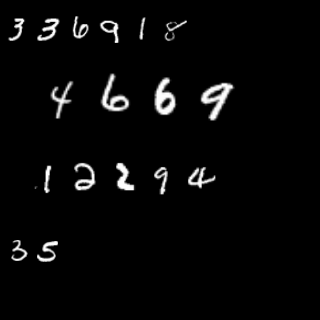 336918
4669
12294
35